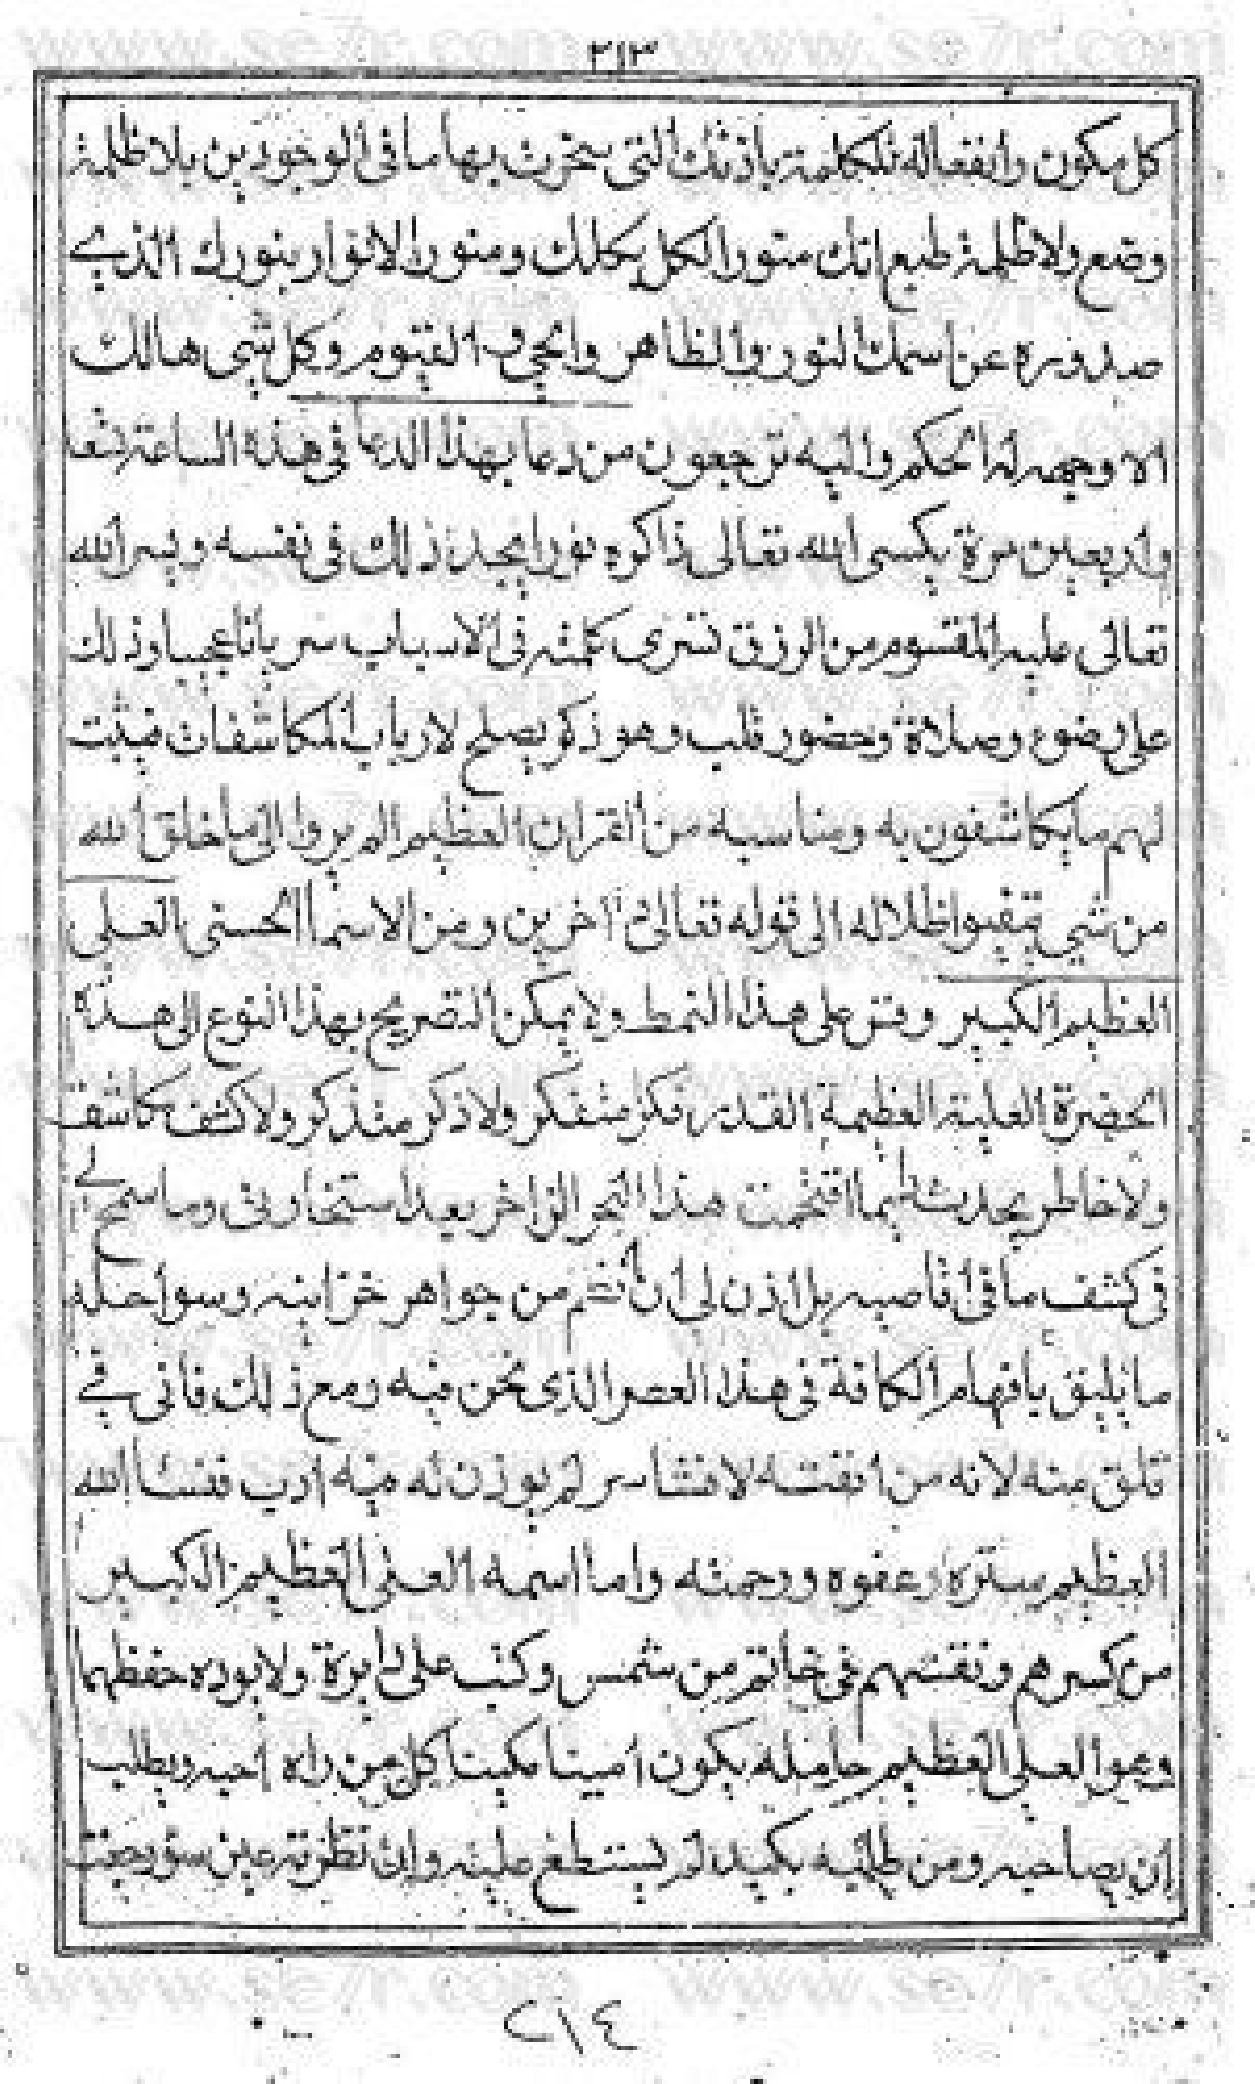 www.se7r.com www.se7r.com
٢١٣
كل مكون وانفعاله للكلمة باذنك التى سخرت بها ما فى الوجود من بلا ظلمة
وضع ولا ظلمة طبع انك منور الكل بكلك ومنور الانوار بنورك الذى
صدوره عن اسمك النور والظاهر والحى القيوم وكل شى هالك
الا وجهه له الحكم واليه ترجعون من دعا بهذا الدعا فى هذه الساعة
واربعين مرة يكسى الله تعالى ذاكره نورا يجد ذلك فى نفسه ويسر الله
تعالى عليه المقسوم من الرزق تسرى كلمته فى الاسباب سريانا عجيبا وذلك
على وضوء وصلاة وحضور قلب وهو ذكر يصلح لارباب المكاشفات
لهم ما يكاشفون به ومناسبه من القران العظيم الم يروا الى ما خلق الله
من شى يتفيوا ظلاله الى قوله تعالى اخرين ومن الاسما الحسنى العلى
العظيم الكبير وقس على هذا النمط ولا يمكن التصريح بهذا النوع الى هذه
الحضرة العلية العظيمة القدر فكر متفكر ولا ذكر متذكر ولا كشف كاشف
ولا خاطر يحدث اقتحمت هذا البحر الزاخر بعد استخارتى وما سمح لى
فى كشف ما فى بل اذن لى ان من جواهر خزاينه وسواحله
ما يليق بافهام الكافة فى هذا العصر الذى نحن فيه ومع ذلك فانى فى
قلق منه لانه من لافشا سر لم يوذن له فيه ادب الله
العظيم ستره وعفوه ورحمته واما اسمه العلى العظيم الكبير
من كسرهم ونقشهم فى خاتم من شمس وكتب على دايرة ولا يوده حفظهما
وهو العلى العظيم حامله يكون امينا مكينا كل من راه احبه ويطلب
ان يصاحبه ومن طلبه بكيد لم يستطع عليه وان نظرته عين سوء
٢١٤
www.se7r.com www.se7r.com